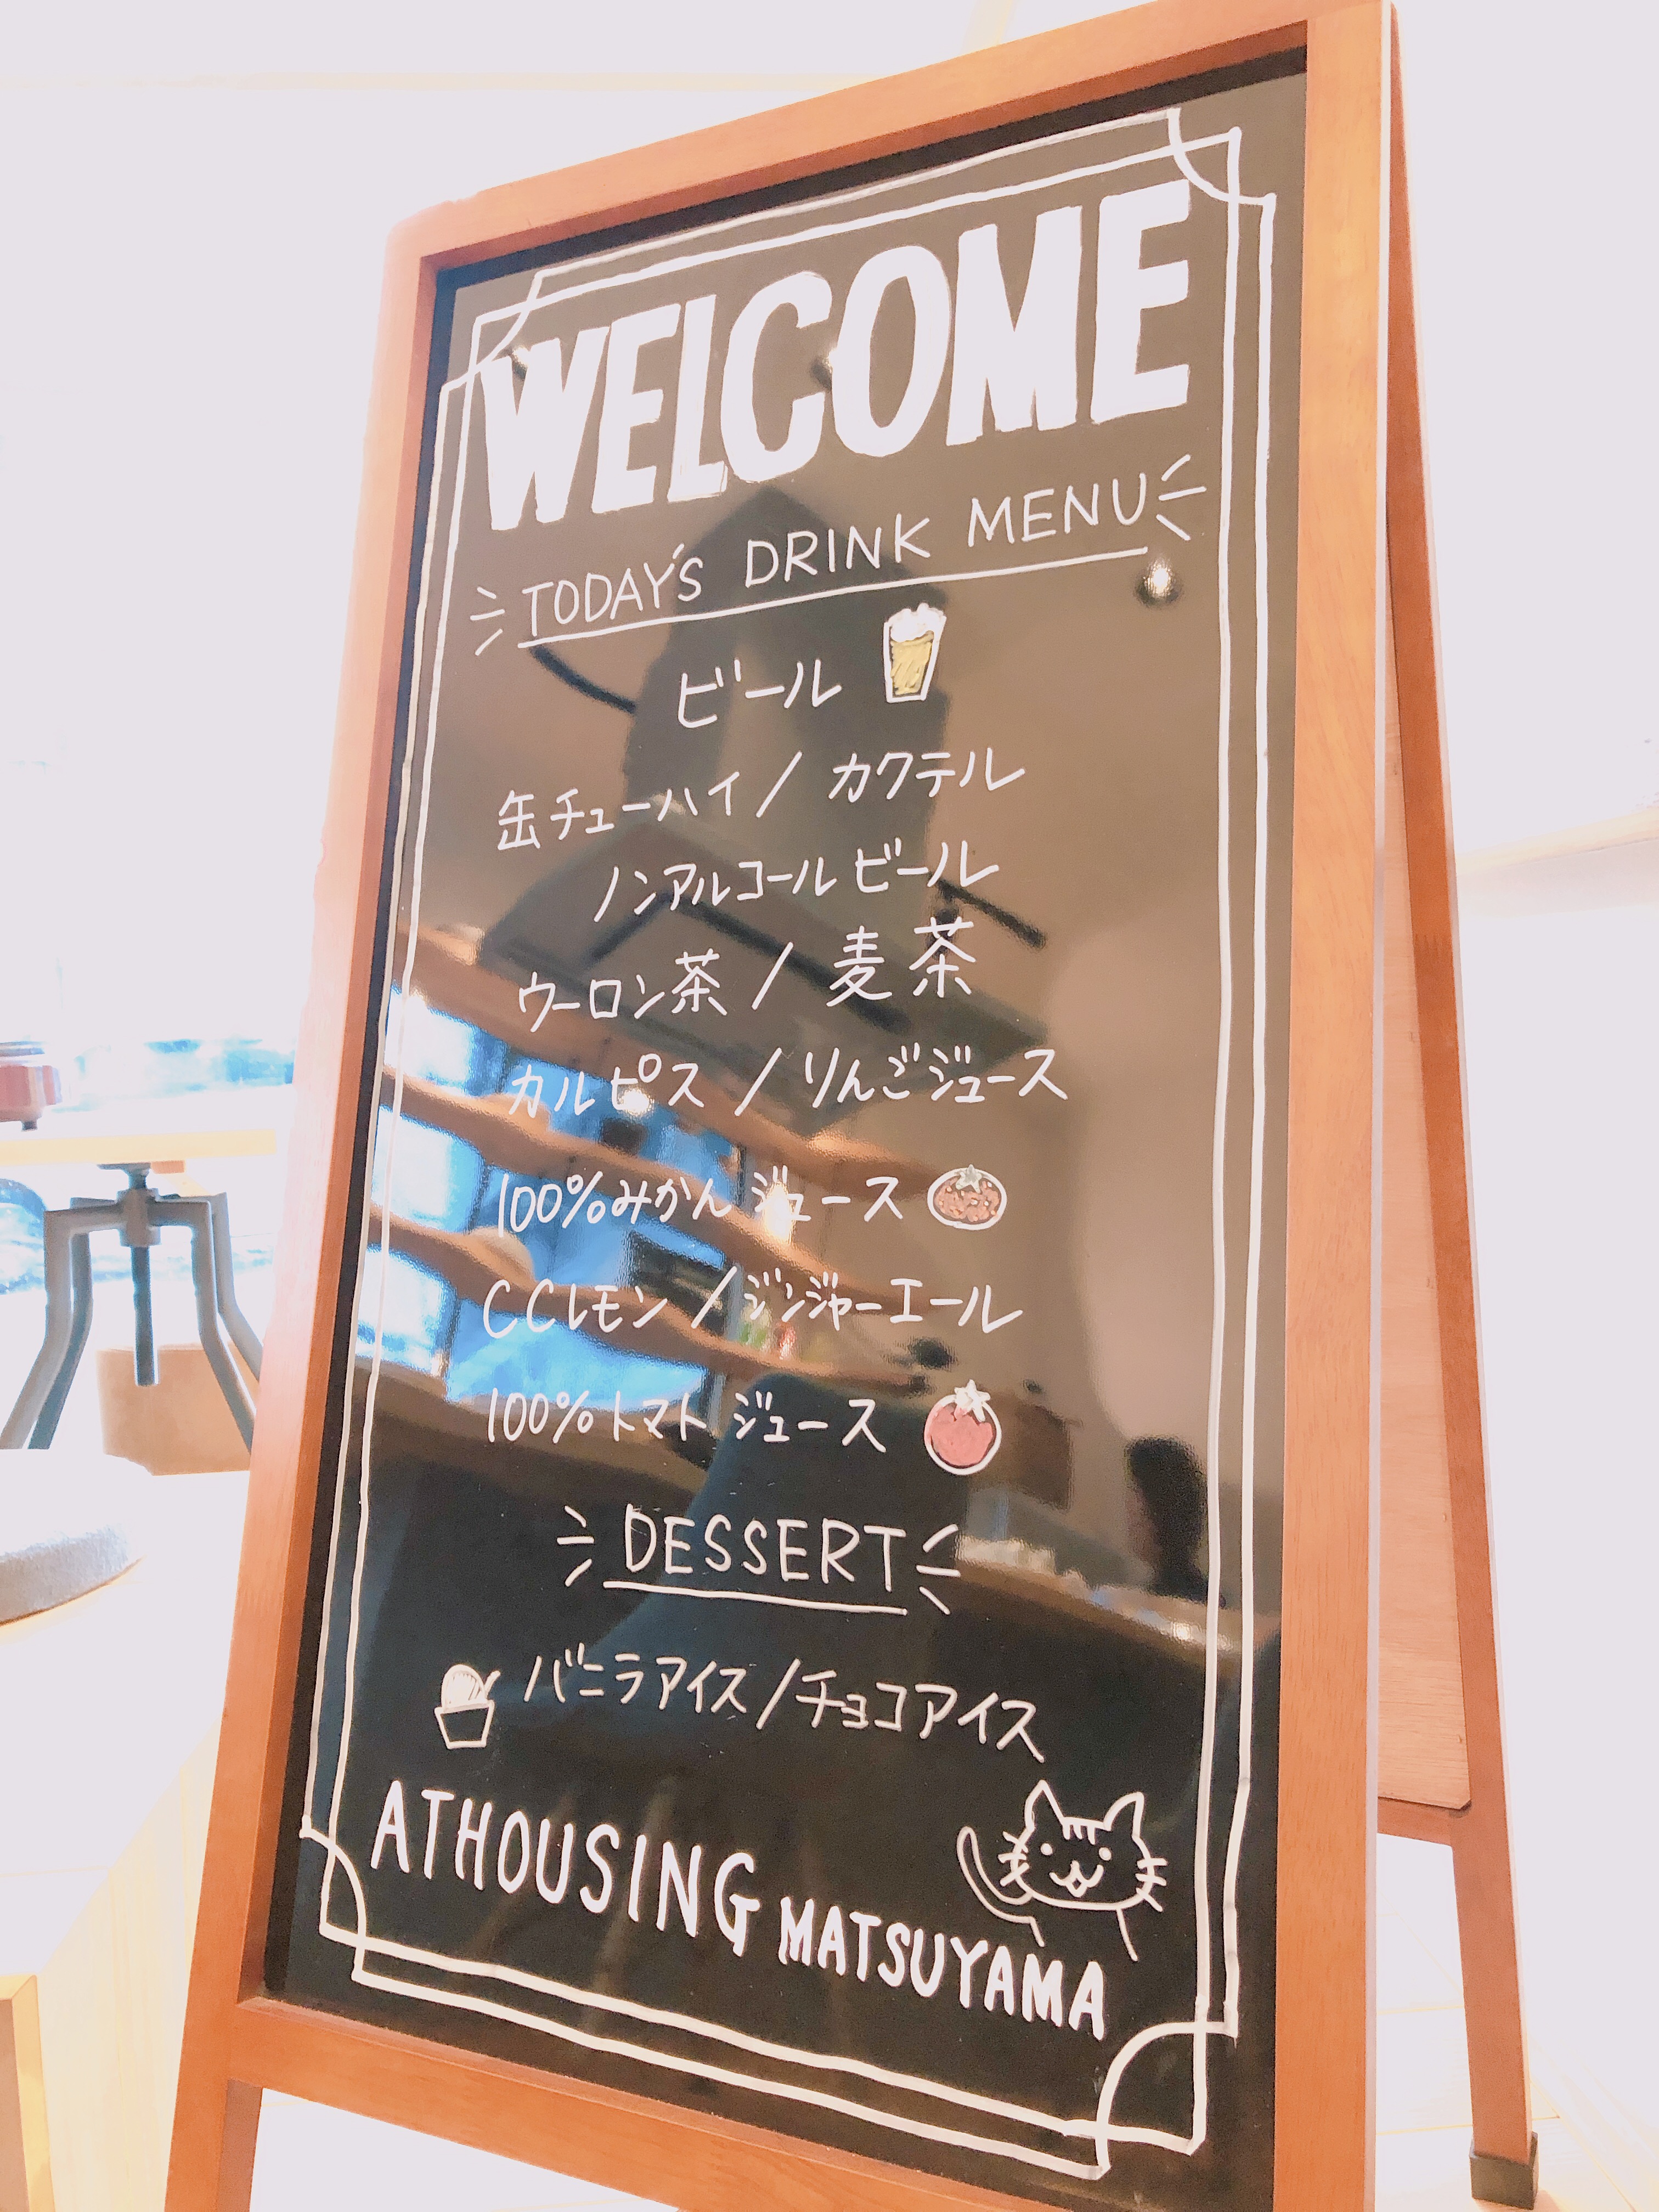 WELCOME
TODAY'S DRINK MENU
ビール
缶チューハイ/カクテル
ノンアルコールビール
ウーロン茶/麦茶
カルピス/りんごジュース
100%みかんジュース
CCレモン/ジンジャーエール
100%トマトジュース
DESSERT
バニラアイス/チョコアイス
ATHOUSING MATSUYAMA